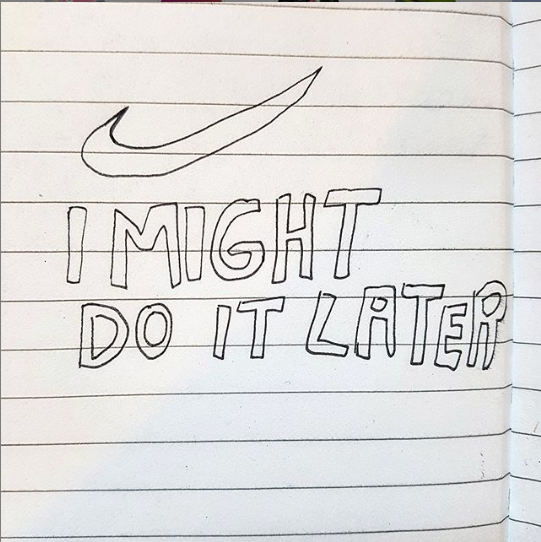 I MIGHT
DO IT LATER